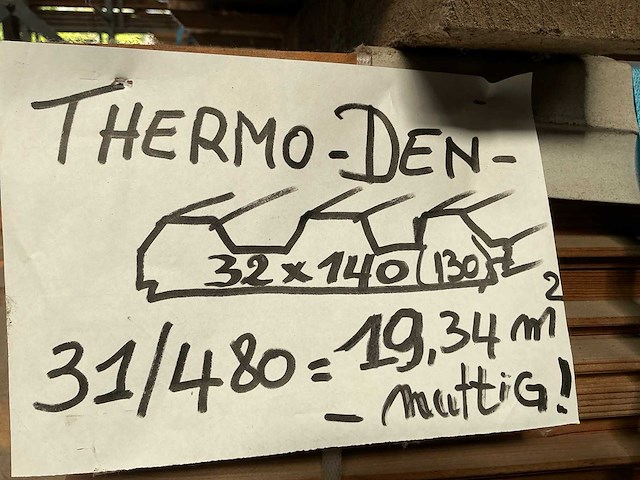 THERMO-DEN-
32 x 140 (130)
31/480 = 19,34 m²
- muttiG!